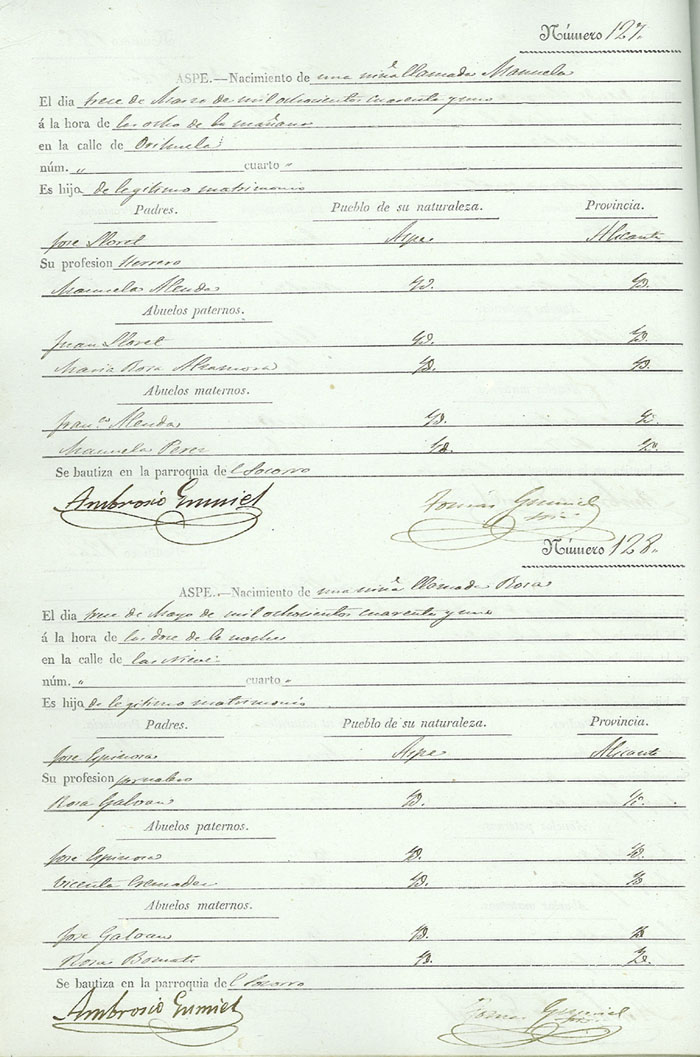 Número 127.
ASPE.—Nacimiento de una niña llamada Manuela
El dia trece de Marzo de mil ochocientos cuarenta y uno
á la hora de las ocho de la mañana
en la calle de Orihuela
núm. „ cuarto „
Es hijo de legitimo matrimonio
Padres. Pueblo de su naturaleza. Provincia.
Jose Lloret Aspe Alicante
Su profesion Herrero
Manuela Alenda Yd. Yd.
Abuelos paternos.
Juan Lloret Yd. Yd.
Maria Rosa Altamora Yd. Yd.
Abuelos maternos.
Franco Alenda Yd. Yd.
Manuela Perez Yd. Yd.
Se bautiza en la parroquia del Socorro
Ambrosio Gumiel Tomas Gumiel
Número 128.
ASPE.—Nacimiento de una niña llamada Rosa
El dia trece de Mayo de mil ochocientos cuarenta y uno
á la hora de las doce de la noche
en la calle de las Nieves
núm. „ cuarto „
Es hijo de legitimo matrimonio
Padres. Pueblo de su naturaleza. Provincia.
Jose Espinosa Aspe Alicante
Su profesion jornalero
Rosa Galvan Yd. Yd.
Abuelos paternos.
Jose Espinosa Yd. Yd.
Vicenta Cremades Yd. Yd.
Abuelos maternos.
Jose Galvan Yd. Yd.
Rosa Bomati Yd. Yd.
Se bautiza en la parroquia del Socorro
Ambrosio Gumiel Tomas Gumiel